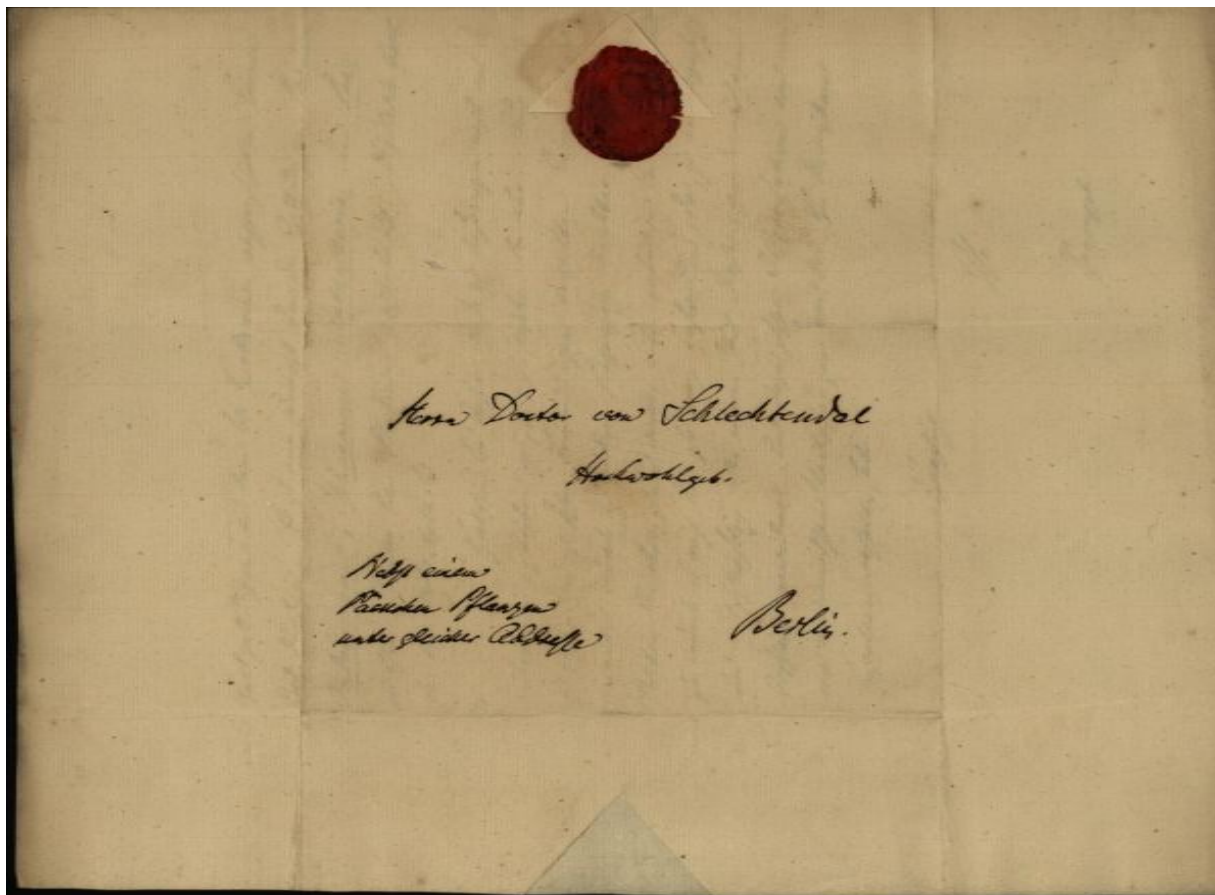 Herrn Doctor von Schlechtendal
Hochwohlgeb.
Nebst einem
Päckchen Pflanzen
unter gleicher Addresse
Berlin.